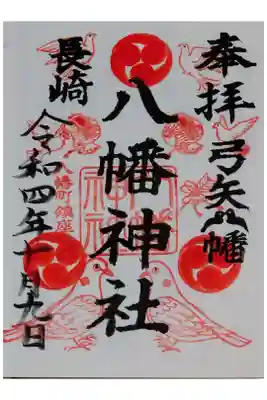 奉拝
弓矢八幡
八幡神社
長崎
令和四年十月九日
八幡町鎮座